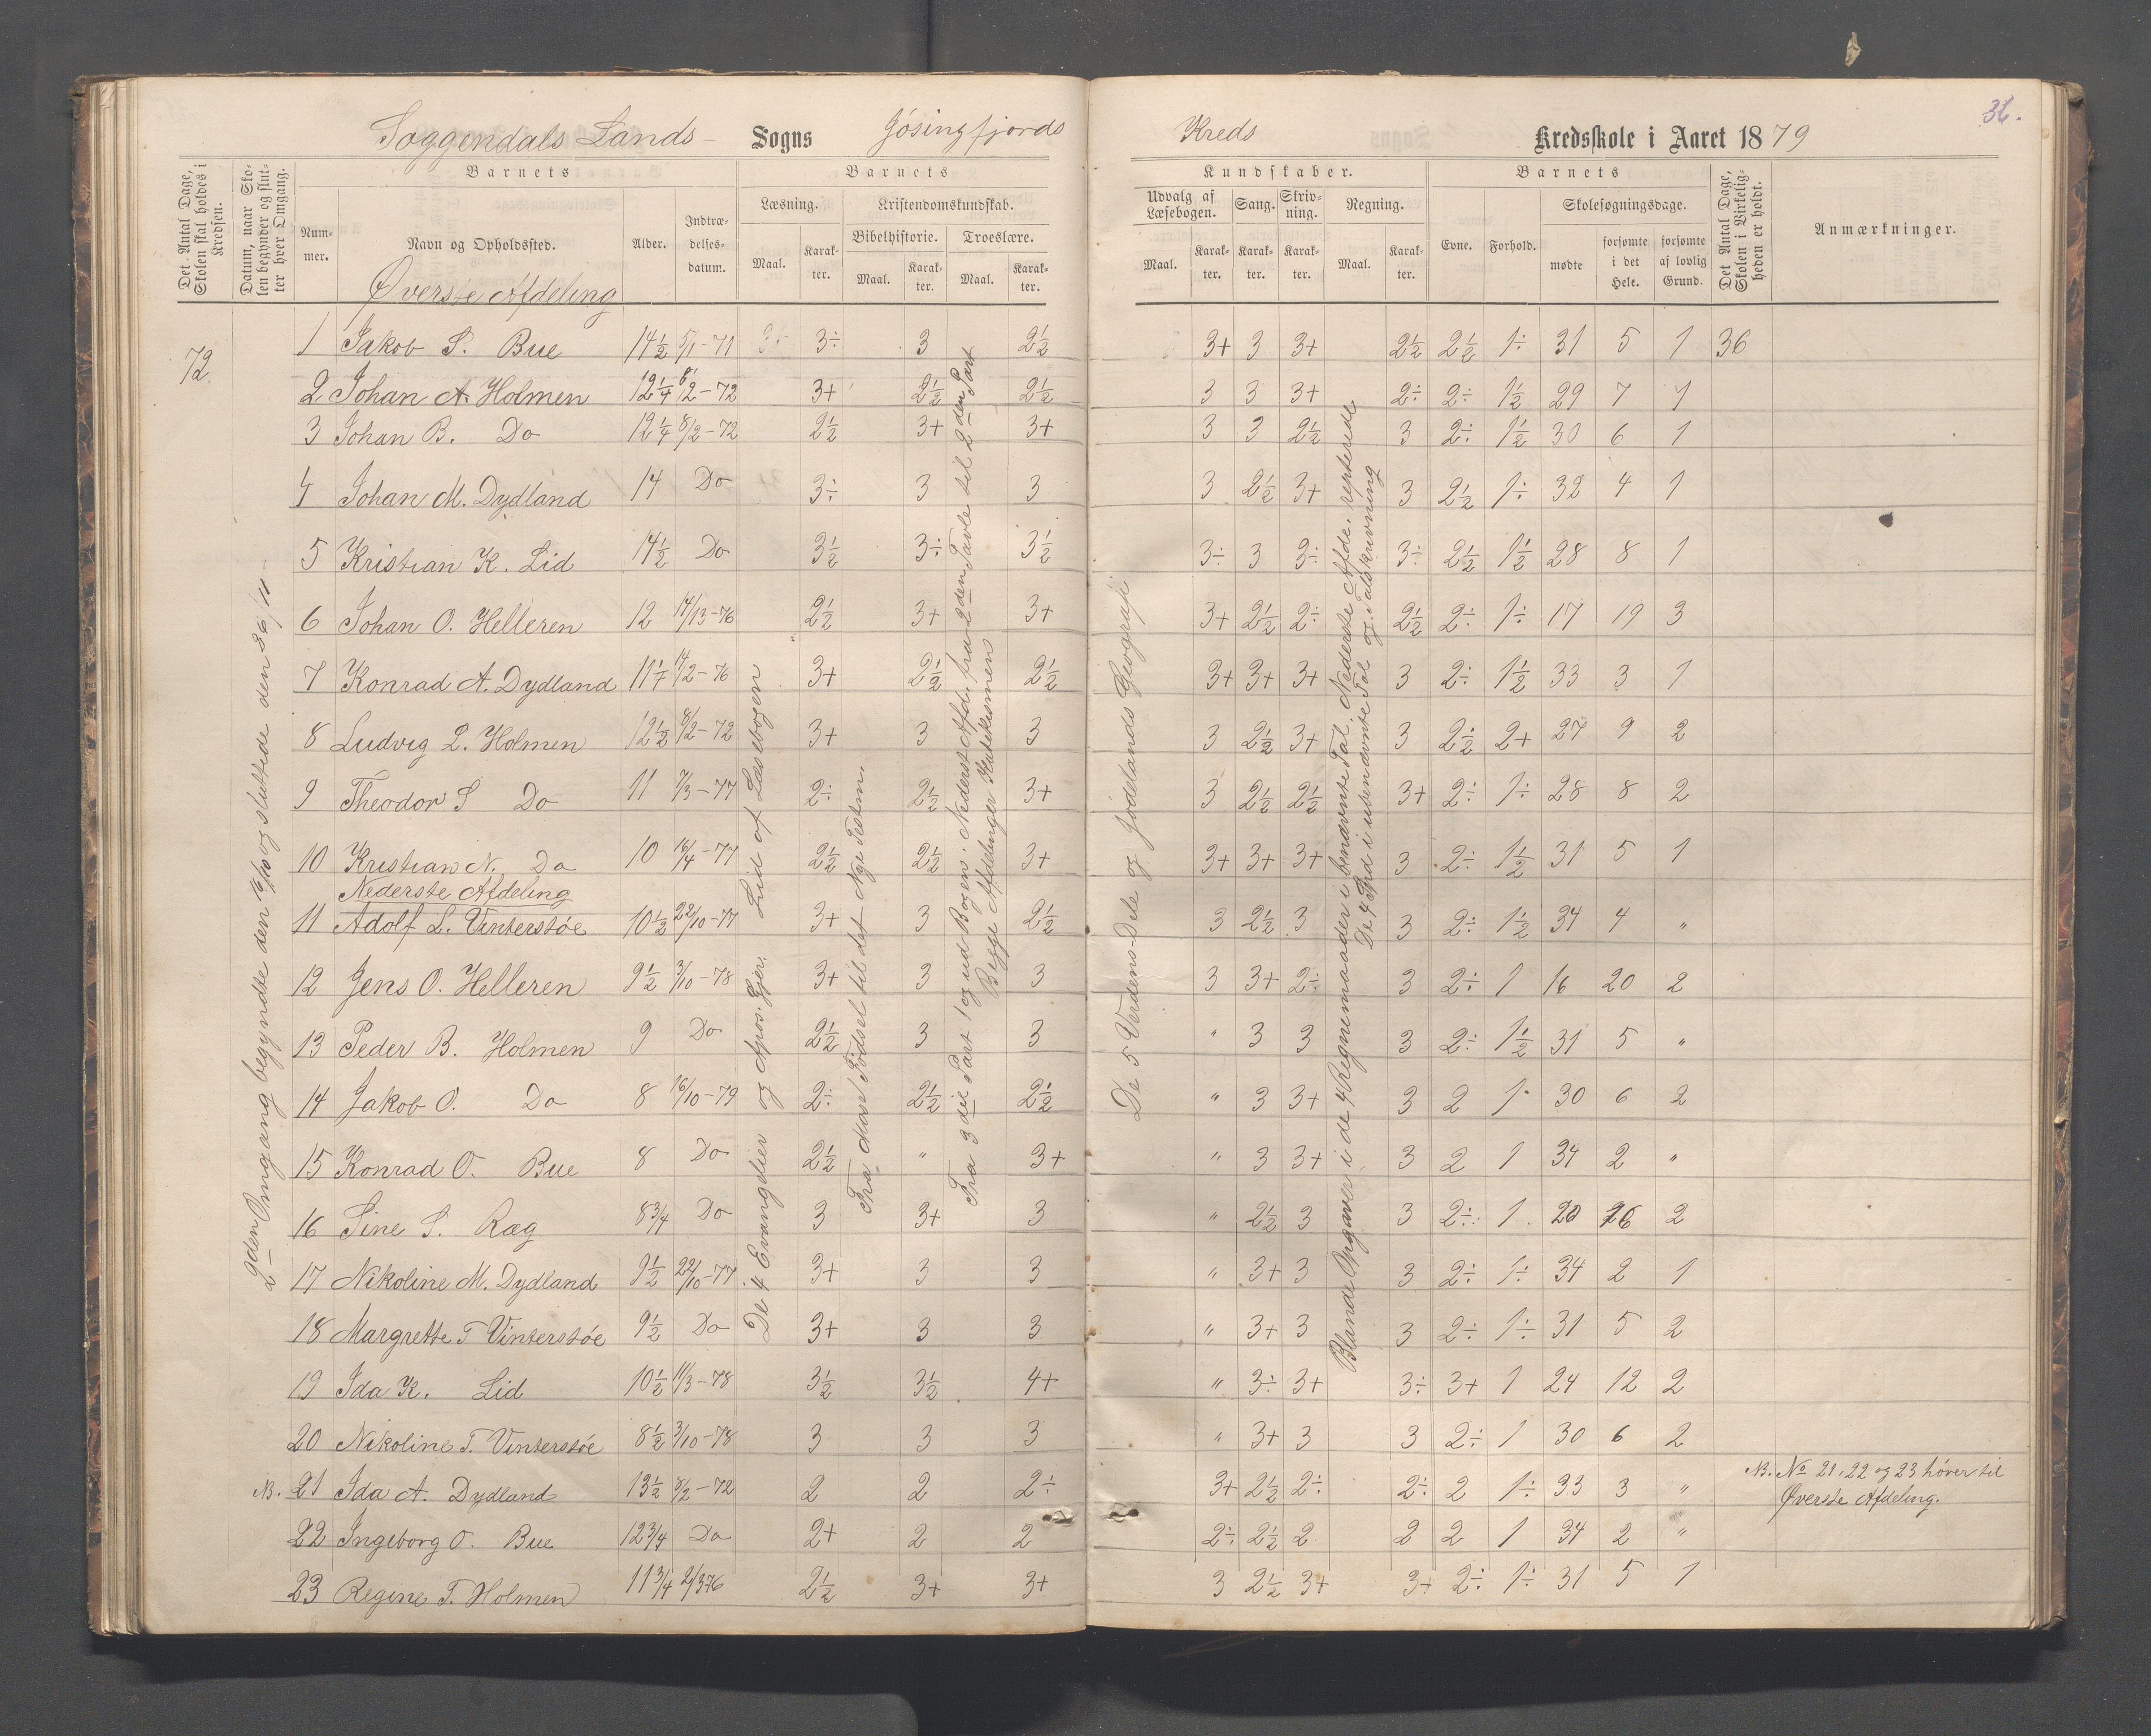 36.
Soggendals Lands- Sogns Jøsingfjords Kreds Kredsskole i Aaret 1879
Det Antal Dage, Skolen skal holdes i Kredsen.
Datum, naar Skolen begynder og slutter hver Omgang.
Barnets
Barnets
Kundskaber.
Barnets
Det Antal Dage, Skolen i Virkeligheden er holdt.
Anmærkninger.
Nummer.
Navn og Opholdssted.
Alder.
Indtrædelsesdatum.
Læsning.
Kristendomskundskab.
Bibelhistorie.
Troeslære.
Udvalg af Læsebogen.
Sang.
Skrivning.
Regning.
Evne.
Forhold.
Skolesøgningsdage.
Maal. Karakter. Maal. Karakter. Maal. Karakter. Maal. Karakter. Karakter. Karakter. Maal. Karakter. mødte forsømte i det Hele. forsømte af lovlig Grund.
Øverste Afdeling
72.
1 Jakob S. Bue 14½ 5/1-71 3÷ 3 2½ 3+ 3 3+ 2½ 2½ 1÷ 31 5 1 36
2 Johan A. Holmen 12¼ 8/2-72 3+ 2½ 2½ 3 3 3+ 2÷ 2÷ 1½ 29 7 1
3 Johan B. Do 12¼ 8/2-72 2½ 3+ 3+ 3 3 2½ 3 2÷ 1½ 30 6 1
4 Johan M. Dydland 14 Do 3÷ 3 3 3 2½ 3+ 3 2½ 1÷ 32 4 1
5 Kristian K. Lid 14½ Do 3½ 3÷ 3½ 3÷ 3 3÷ 3÷ 2½ 1½ 28 8 1
6 Johan O. Helleren 12 14/13-76 2½ 3+ 3+ 3+ 2½ 2÷ 2½ 2÷ 1÷ 17 19 3
7 Konrad A. Dydland 14/2-76 3+ 2½ 2½ 3+ 3+ 3+ 3 2÷ 1½ 33 3 1
8 Ludvig L. Holmen 12½ 8/2-72 3+ 3 3 3 2½ 3+ 3 2½ 2+ 27 9 2
9 Theodor S Do 11 7/3-77 2÷ 2½ 3+ 3 2½ 2½ 3+ 2÷ 1÷ 28 8 2
10 Kristian N. Do 10 16/4-77 2½ 2½ 3+ 3+ 3+ 3+ 3 2÷ 1½ 31 5 1
Nederste Afdeling
11 Adolf L. Vinterstøe 10½ 22/10-77 3+ 3 2½ 3 2½ 3 3 2÷ 1½ 34 4 "
12 Jens O. Helleren 9½ 3/10-78 3+ 3 3 3 3+ 2÷ 3 2÷ 1 16 20 2
13 Peder B. Holmen 9 Do 2½ 3 3 " 3 3 3 2÷ 1½ 31 5 "
14 Jakob O. Do 8 16/10-79 2÷ 2½ 2½ " 3 3+ 3 2 1÷ 30 6 2
15 Konrad O. Bue 8 Do 2½ " 3+ " 3 3+ 3 2 1 34 2 "
16 Sine S. Ræg 8¾ Do 3 3+ 3 " 2½ 3 3 2÷ 1 20 16 2
17 Nikoline M. Dydland 9½ 22/10-77 3+ 3 3 " 3+ 3 3 2÷ 1÷ 34 2 1
18 Margrette T Vinterstøe 9½ Do 3+ 3 3 " 3+ 3 3 2÷ 1÷ 31 5 2
19 Ida K. Lid 10½ 11/3-78 3½ 3½ 4+ " 3÷ 3+ 3÷ 3+ 1 24 12 2
20 Nikoline T. Vinterstøe 8½ 3/10-78 3 3 3 " 3+ 3 3 2÷ 1 30 6 2
NB. 21 Ida A. Dydland 13½ 8/2-72 2 2 2÷ 3+ 2½ 2÷ 2÷ 2 1÷ 33 3 " NB. No 21, 22 og 23 hører til
Øverste Afdeling.
22 Ingeborg O. Bue 12¾ Do 2+ 2 2 2÷ 2½ 2 2 2 1 34 2 "
23 Regine T. Holmen 11¾ 2/3 76 2½ 3+ 3+ 3 2½ 3+ 3+ 2÷ 1÷ 31 5 1
2den Omgang begyndte den 16/10 og sluttede den 26/11
De 4 Evangelier og Apos. Gjer. Lid af Læsebogen
Fra Mose Fødsel til det Nye Testm.
Fra 3die Part 1 og ud Bogen. Nederst Afd. fra 2den Tavle til 2den Part
Begge Afdelinger Katekismen
De 5 Verdens-Dele og Jødelands Geografi
Blande Opgaver i de 4 Regnemaader i benævnte Tal. Nederste Afde. repterede
De 4 Spd i ubenævnte Tal og Talskrivning